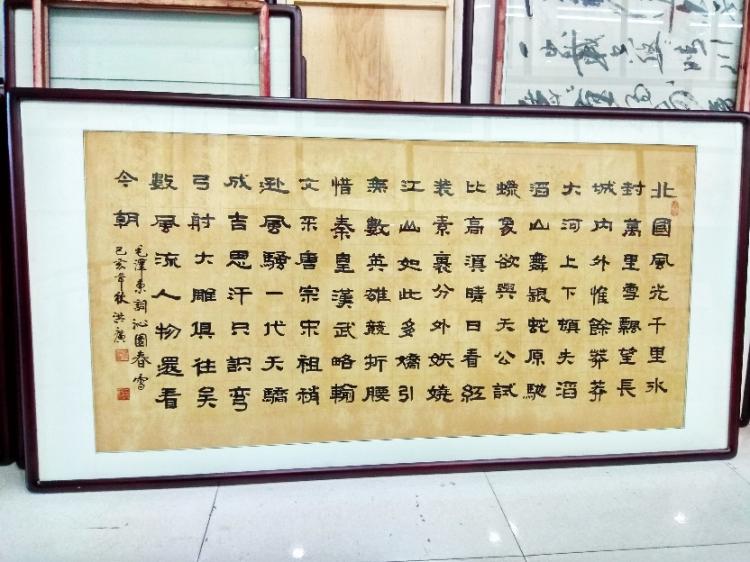 北國風光千里氷
封萬里雪飄望長
城内外惟餘莽莽
大河上下頓失滔
滔山舞銀蛇原馳
蠟象欲與天公試
比高湏晴日看紅
裝素裹分外妖嬈
江山如此多嬌引
無數英雄競折腰
惜秦皇漢武略輸
文采唐宗宋祖稍
遜風騷一代天驕
成吉思汗只識彎
弓射大雕俱往矣
數風流人物還看
今朝
毛澤東詞沁園春雪
己亥年秋洪廣